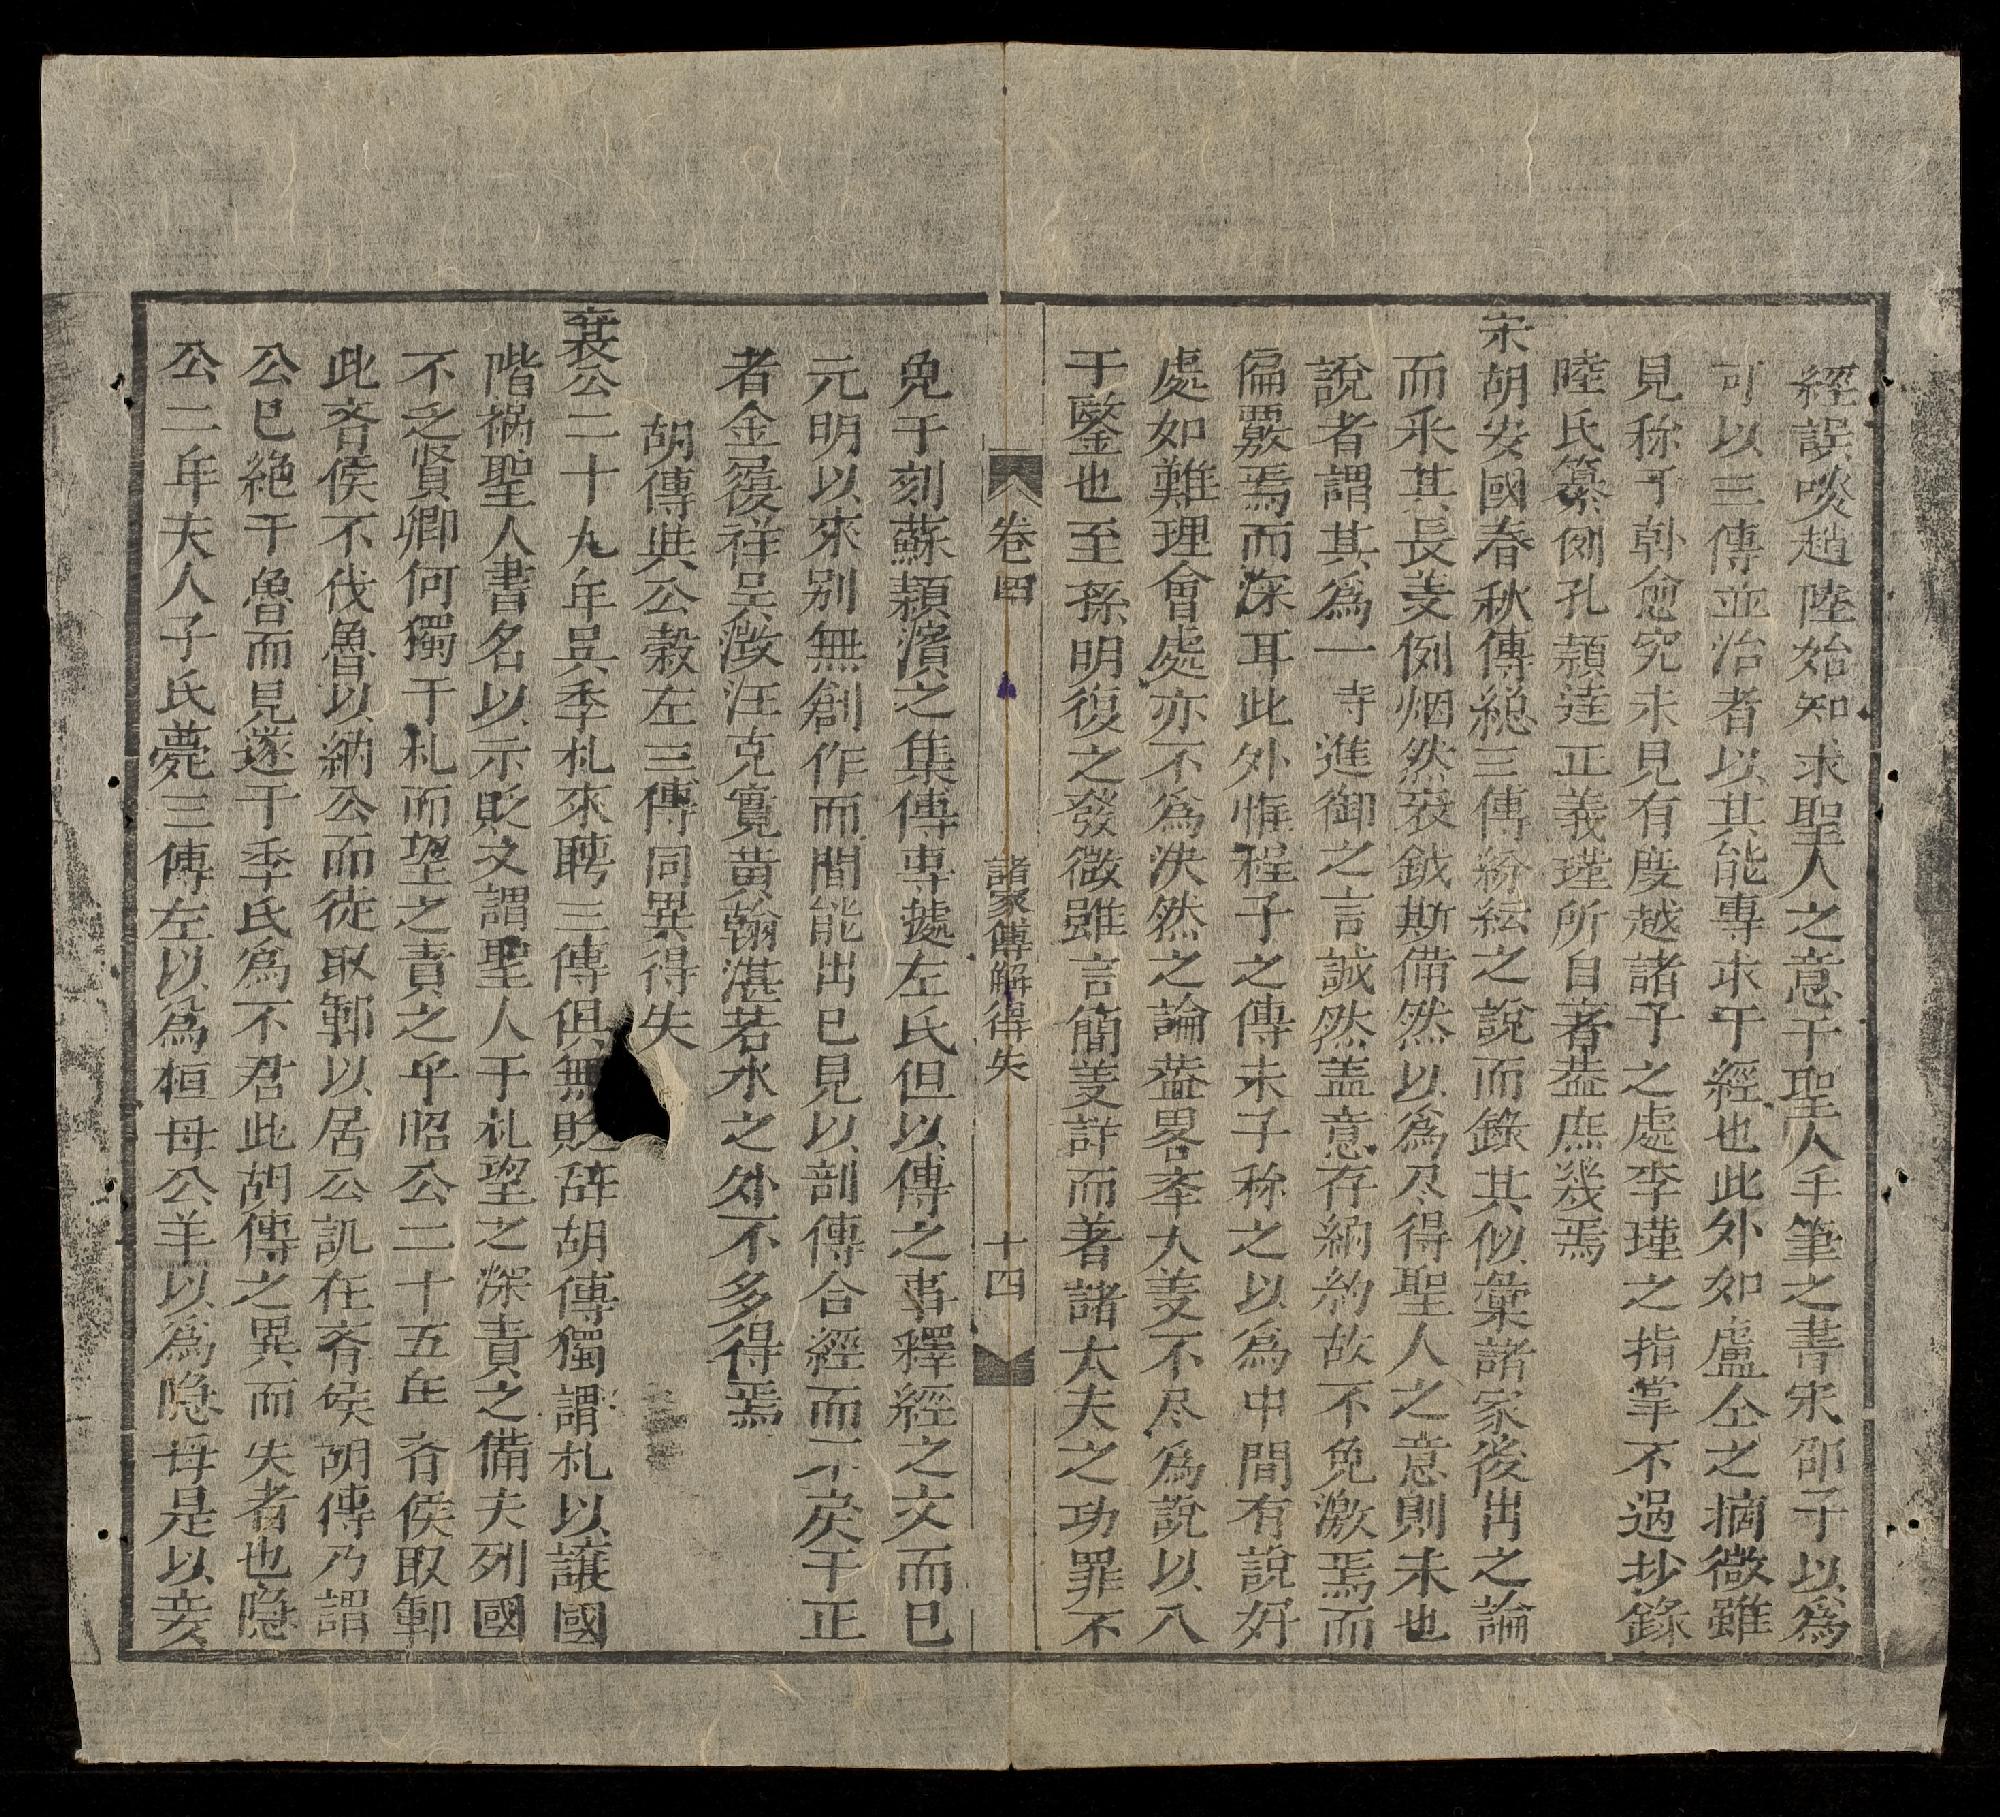 經誤啖趙陸始知求聖人之意于聖人手筆之書宋邵子以為
可以三傳並治者以其能專求于經也此外如盧仝之摘微雖
見称于韓愈究未見有度越諸子之處李瑾之指掌不過抄錄
陸氏纂例孔頴逹正義瑾所自著葢庶幾焉
宋胡安國春秋傳總三傳紛紜之說而錄其似彙諸家後出之論
而釆其長义例烟然衮鉞斯備然以為尽得聖人之意則未也
說者謂其為一時進御之言誠然盖意存納約故不免激焉而
偏覈焉而深耳此外惟程子之傳朱子称之以為中間有說好
處如難理會處亦不為决然之論葢畧本大义不尽為說以八
于鑒也至孫明復之發微雖言簡义詳而著諸大夫之功罪不
卷四　諸家傳解得失　十四
免于刻蘇頴濱之集傳專據左氏但以傳之事釋經之文而已
元明以來别無創作而間能出已見以剖傳合經而不戾于正
者金履祥吳澂汪克寬黄翰湛若水之外不多得焉
胡傳與公穀左三傳同異得失
襄公二十九年吳季札來聘三傳俱無貶辞胡傳獨謂札以讓國
階禍聖人書名以示貶文謂聖人于札望之深責之備夫列國
不乏賢卿何獨于札而望之責之乎昭公二十五年齐侯取鄆
此齐侯不伐魯以納公而徒取鄆以居公訊在齐侯胡傳乃謂
公已絶于魯而見逐于季氏為不君此胡傳之異而失者也隐
公二年夫人子氏薨三傳左以為桓母公羊以為隐母是以妾